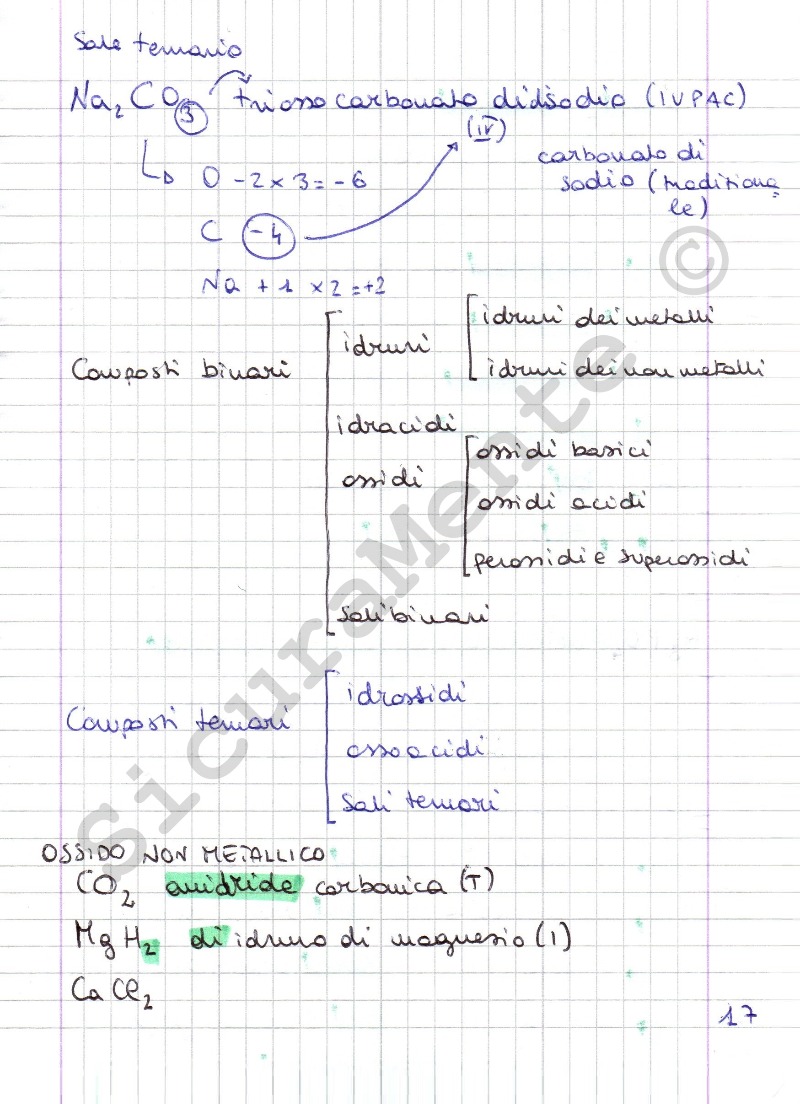 Sale ternario
Na₂CO₃ triosso carbonato didisodio (IUPAC)
(IV)
carbonato di
sodio (traditiona
le)
O -2 × 3 = -6
C -4
Na +1 × 2 = +2
Composti binari
idruri
idruri dei metalli
idruri dei non metalli
idracidi
ossidi
ossidi basici
ossidi acidi
perossidi e superossidi
sali binari
Composti ternari
idrossidi
ossoacidi
Sali ternari
OSSIDO NON METALLICO
CO₂ anidride carbonica (T)
MgH₂ di idruro di magnesio (I)
CaCl₂
17
SicuraMente ©